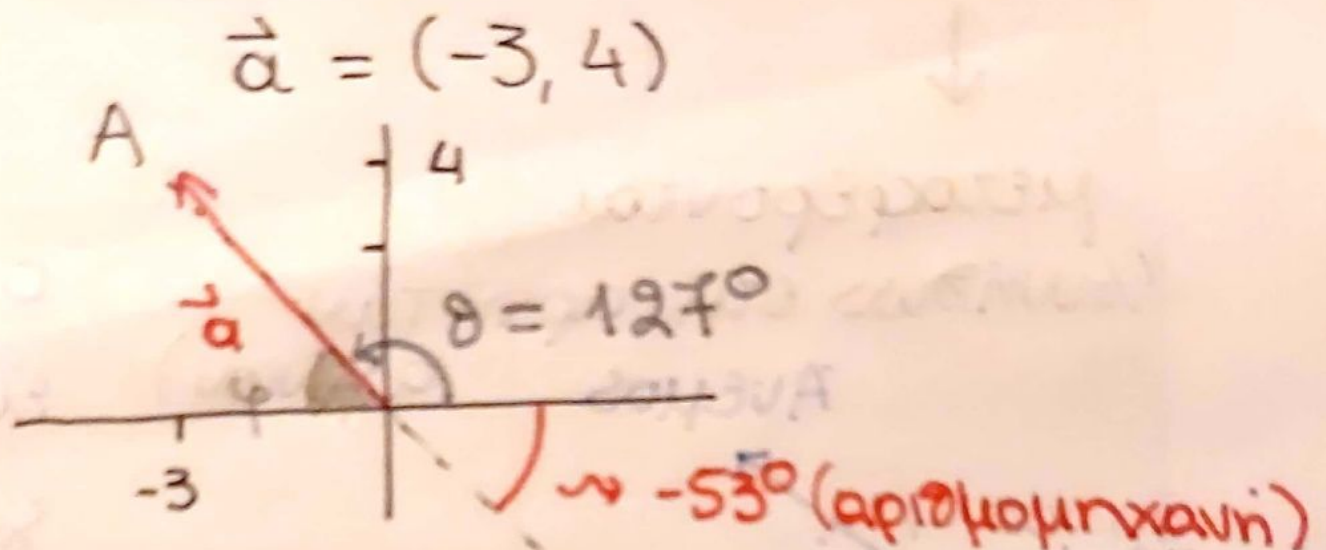 a⃗ = (-3, 4)
A
4
a⃗
θ = 127°
φ
-3
-53° (αριθμομηχανή)